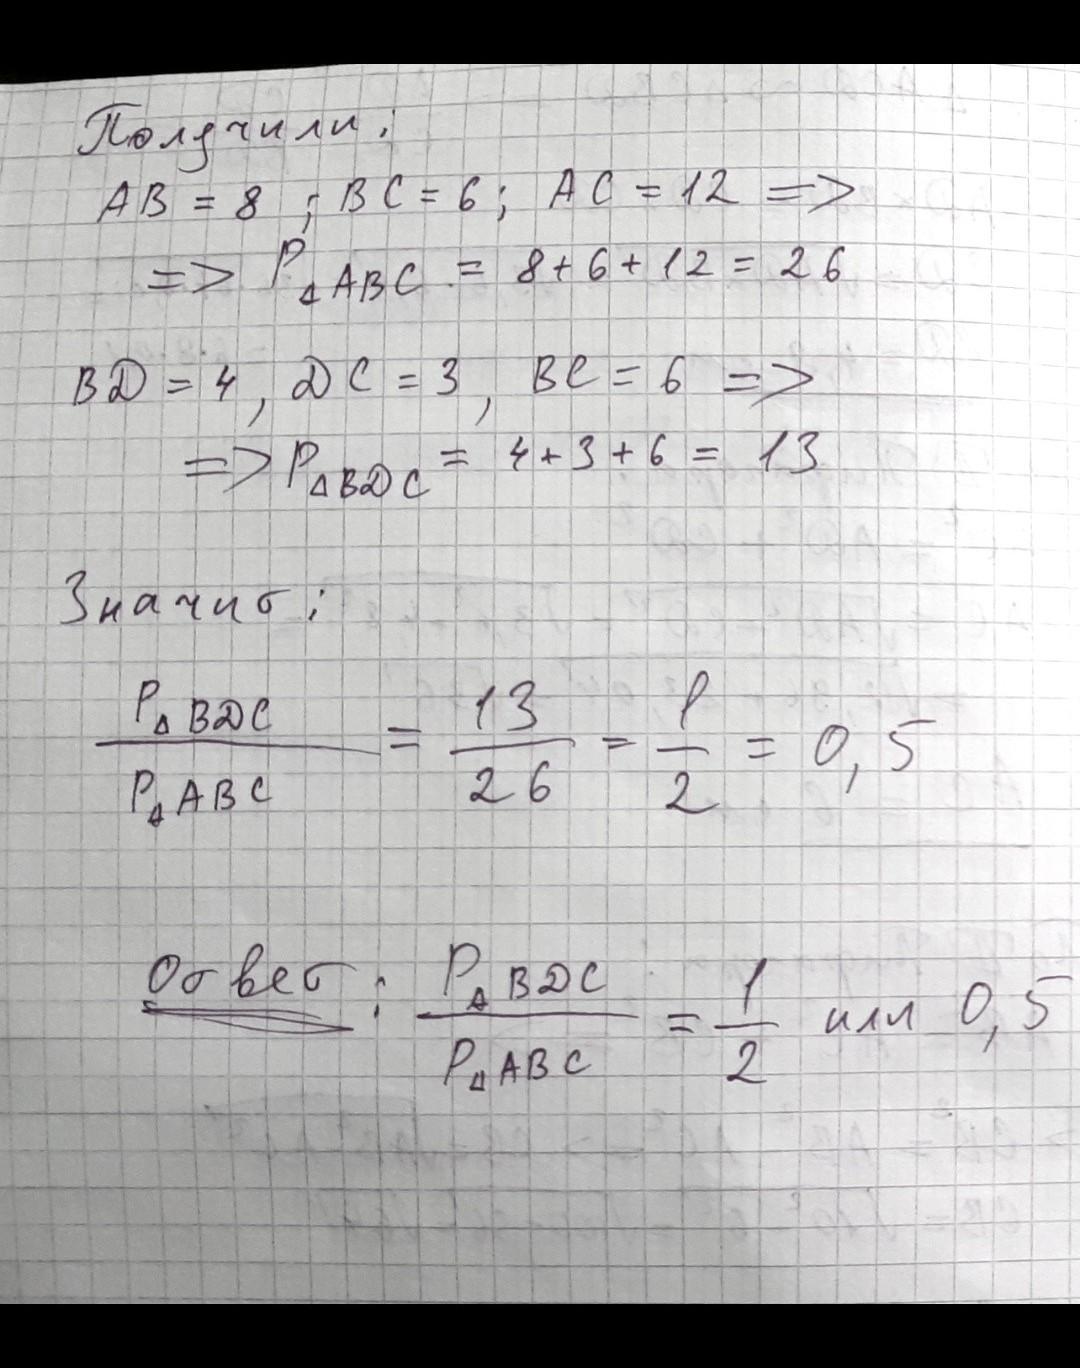 Получили:
AB = 8 ; BC = 6; AC = 12 =>
=> P△ABC = 8 + 6 + 12 = 26
BD = 4, DC = 3, BC = 6 =>
=> P△BDC = 4 + 3 + 6 = 13
Значит:
P△BDC / P△ABC = 13/26 = 1/2 = 0,5
Ответ: P△BDC / P△ABC = 1/2 или 0,5